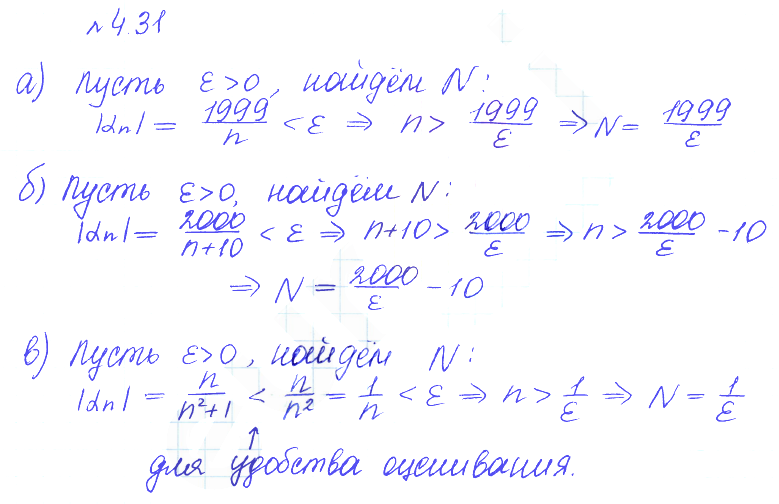 №4.31
а) Пусть ε>0, найдём N:
|αn| = 1999/n < ε ⇒ n > 1999/ε ⇒ N = 1999/ε
б) Пусть ε>0, найдём N:
|αn| = 2000/n+10 < ε ⇒ n+10 > 2000/ε ⇒ n > 2000/ε -10
⇒ N = 2000/ε -10
в) Пусть ε>0, найдём N:
|αn| = n/n²+1 < n/n² = 1/n < ε ⇒ n > 1/ε ⇒ N = 1/ε
↑
для удобства оценивания.